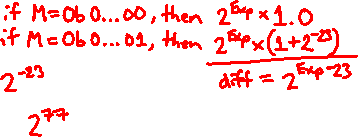 if M=0b0...00, then 2^Exp × 1.0
if M=0b0...01, then 2^Exp × (1+2^-23)
diff = 2^Exp-23
2^-23
2^77